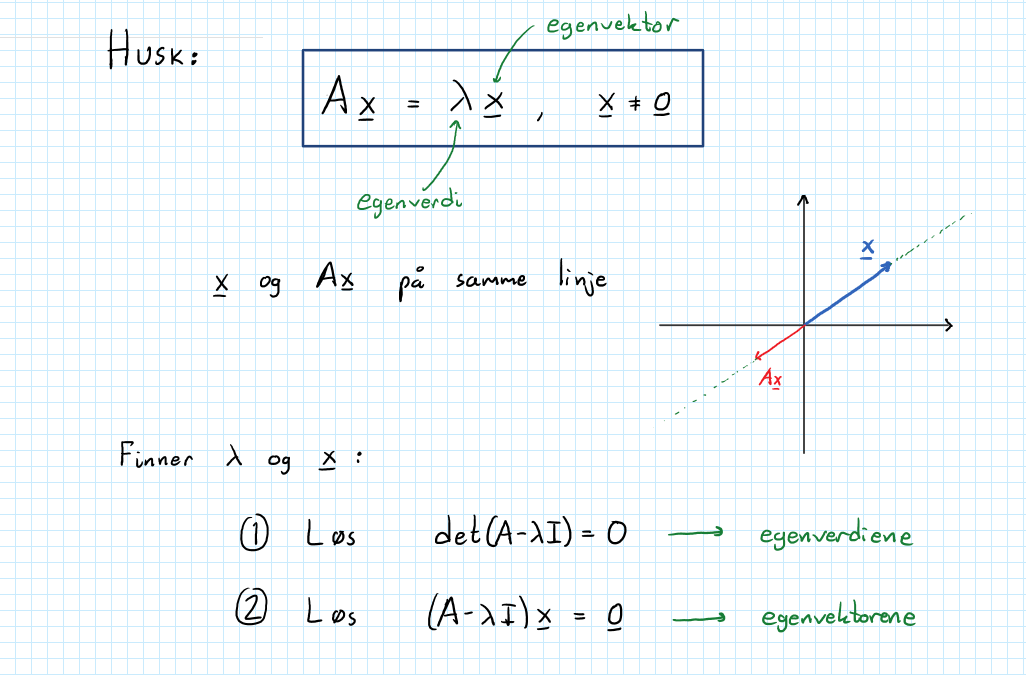 egenvektor
Husk:
Ax = λx , x ≠ 0
egenverdi
x
x og Ax på samme linje
Ax
Finner λ og x :
① Løs det(A-λI) = 0 → egenverdiene
② Løs (A-λI)x = 0 → egenvektorene